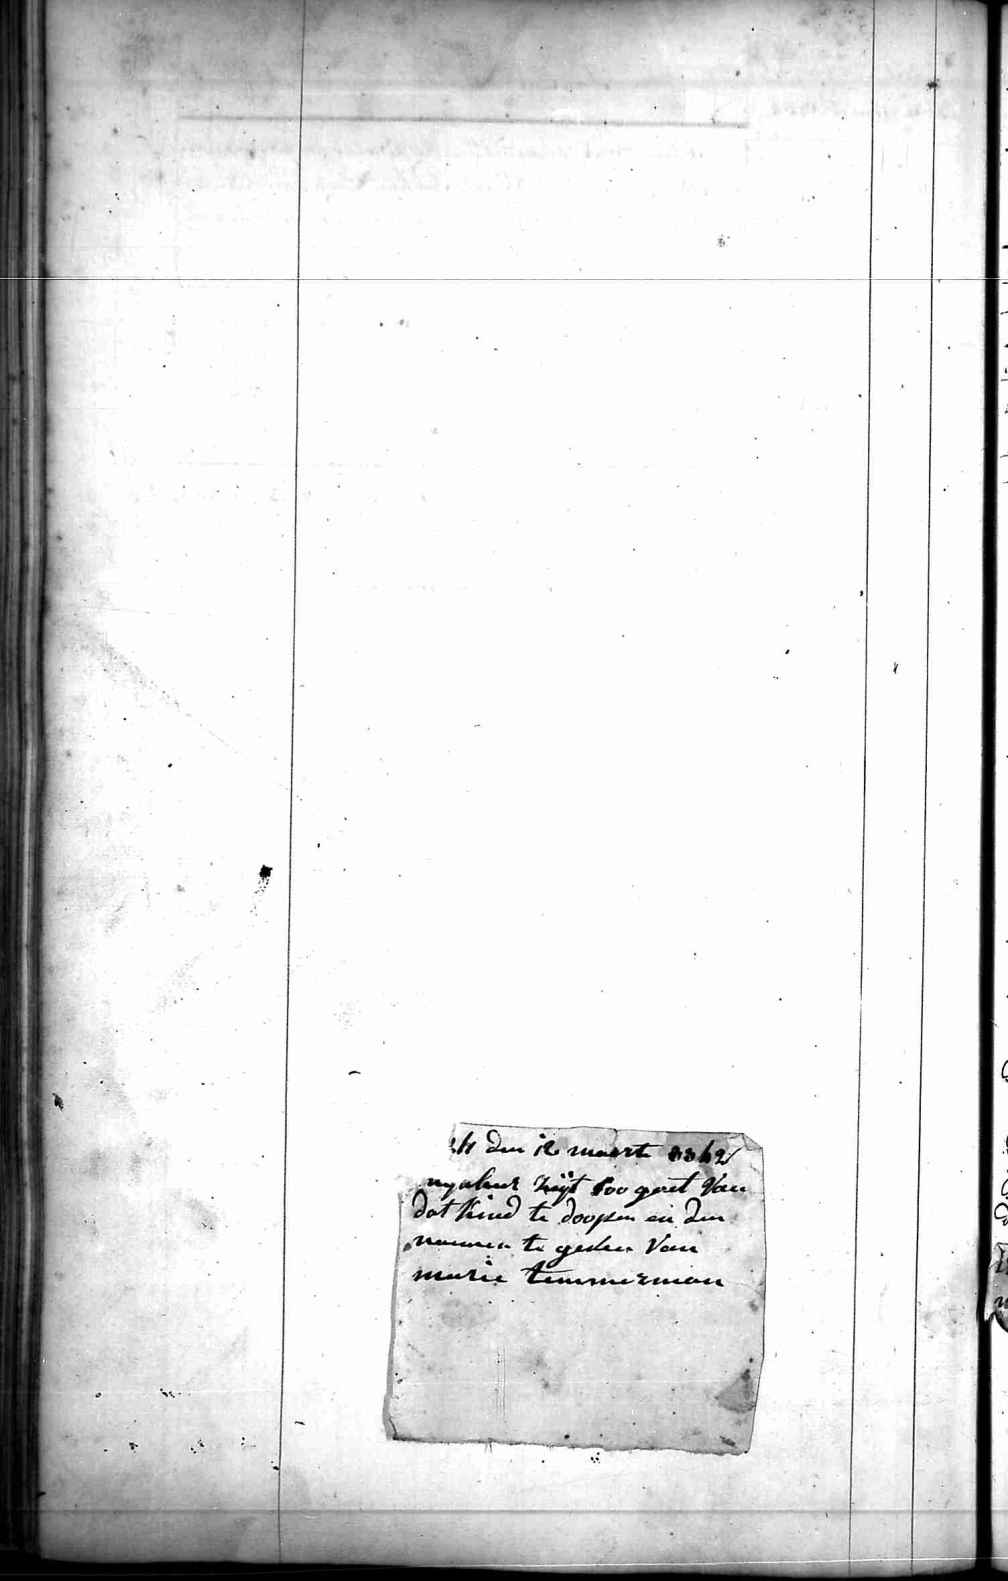 den 12 maarte 1842
mynheer zijt soo goet Van
dat kind te doopen en den
naemen te geden Van
marie temmerman